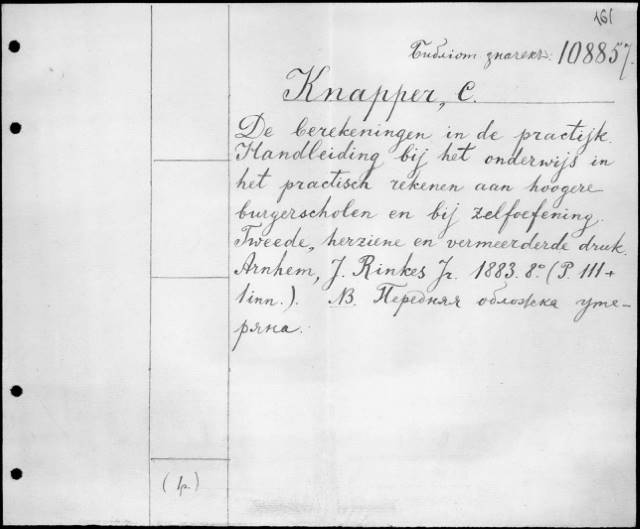 161
Библіот. значекъ: 108857.
Knapper, C.
De berekeningen in de practijk.
Handleiding bij het onderwijs in
het practisch rekenen aan hoogere
burgerscholen en bij zelfoefening.
Tweede, herziene en vermeerderde druk.
Arnhem, J. Rinkes Jr. 1883. 8° (P. 111 +
1 inn.). NB. Передняя обложка уте-
ряна.